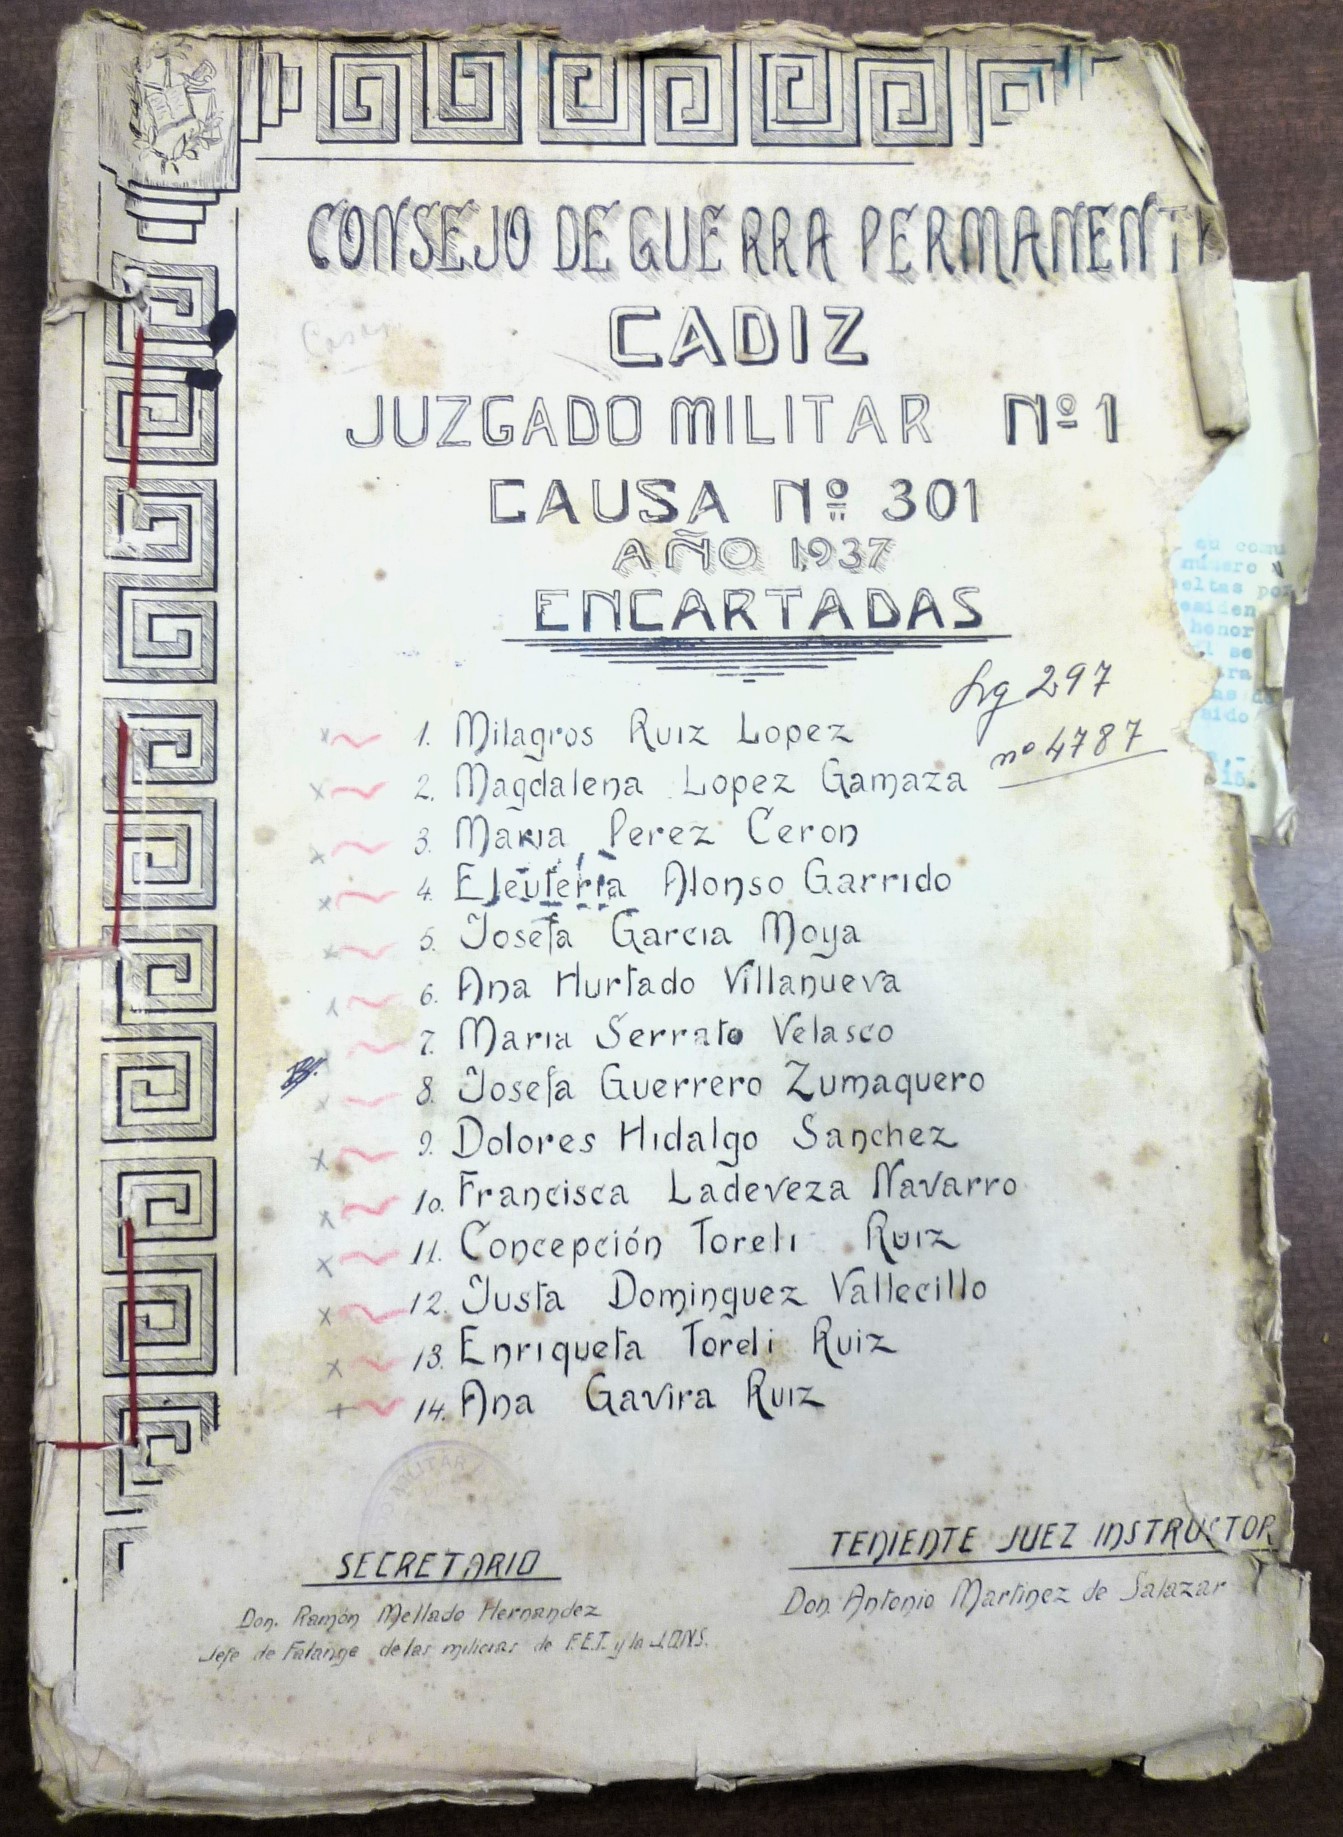 CONSEJO DE GUERRA PERMANENTE
CADIZ
Casa
JUZGADO MILITAR Nº 1
CAUSA Nº 301
AÑO 1937
ENCARTADAS
Lrg 297
nº 4787
1. Milagros Ruiz Lopez
2. Magdalena Lopez Gamaza
3. Maria Perez Ceron
4. Eleuteria Alonso Garrido
5. Josefa Garcia Moya
6. Ana Hurtado Villanueva
7. Maria Serrato Velasco
8. Josefa Guerrero Zumaquero
9. Dolores Hidalgo Sanchez
10. Francisca Ladeveza Navarro
11. Concepción Toreli Ruiz
12. Justa Dominguez Vallecillo
13. Enriqueta Toreli Ruiz
14. Ana Gavira Ruiz
MILITAR
SECRETARIO
Don. Ramón Mellado Hernandez
Jefe de Falange de las milicias de F.E.T. y la J.O.N.S.
TENIENTE JUEZ INSTRUCTOR
Don Antonio Martinez de Salazar
número
eltas por
esiden
honor